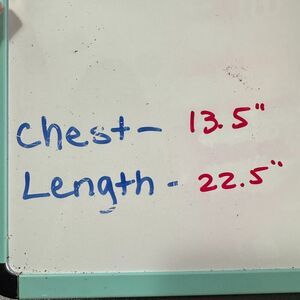 Chest- 13.5"
Length- 22.5"